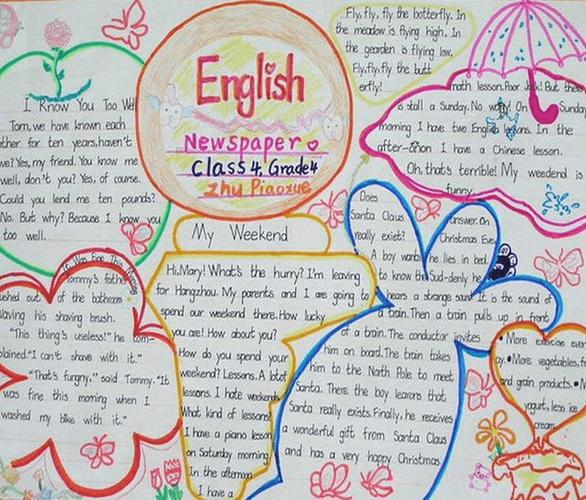 English
Newspaper
Class4. Grade4
Zhu Piaoxue
I Know You Too Well
Tom, we have known each
other for ten years, haven't
we? Yes, my friend. You know me
well, don't you? Yes, of course.
Could you lend me ten pounds?
No. But why? Because I know you
too well.
Fly, fly, fly the botterfly. In
the meadow is flying high. In
the gearden is flying low.
Fly, fly, fly the butt
erfly!
My Weekend
Hi, Mary! What's the hurry? I'm leaving
for Hangzhou. My parents and I are going to
spend our weekend there. How lucky
you are! How about you?
How do you spend your
weekend? Lessons. A lot
lessons. I hate weekends
What kind of lessons?
I have a piano lesson
on Saturday morning.
In the afternoon
I have a
math lesson. Poor Jack! But there
is stall a Sunday. No worry! On Sunday
morning I have two English lessons. In the
after-shon I have a Chinese lesson.
Oh, that's terrible! My weedend is
funny.
It Was Fine This Morning
Tommy's father
rushed out of the bathroom
waving his shaving brush.
"This thing's useless!" he com-
plained. "I can't shave with it."
"That's furgny," said Tommy. "It
was fine this morning when I
washed my bike with it."
Does
Santa Claus
really exist?
A boy wants
to know the
answer. On
Christmas Eve,
he lies in bed.
Sud-denly he
hears a strange soud. It is the sound of
a train. Then a train pulls up in front
of a train. The conductor invites
him on board. The train takes
him to the North Pole to meet
Santa. There the boy learns that
Santa really exists. Finally, he receives
a wonderful gift from Santa Claus
and has a very happy Christmas.
More exercise ever
ay. More vegetables, f
and grain products.
yogurt, less ice
cream.